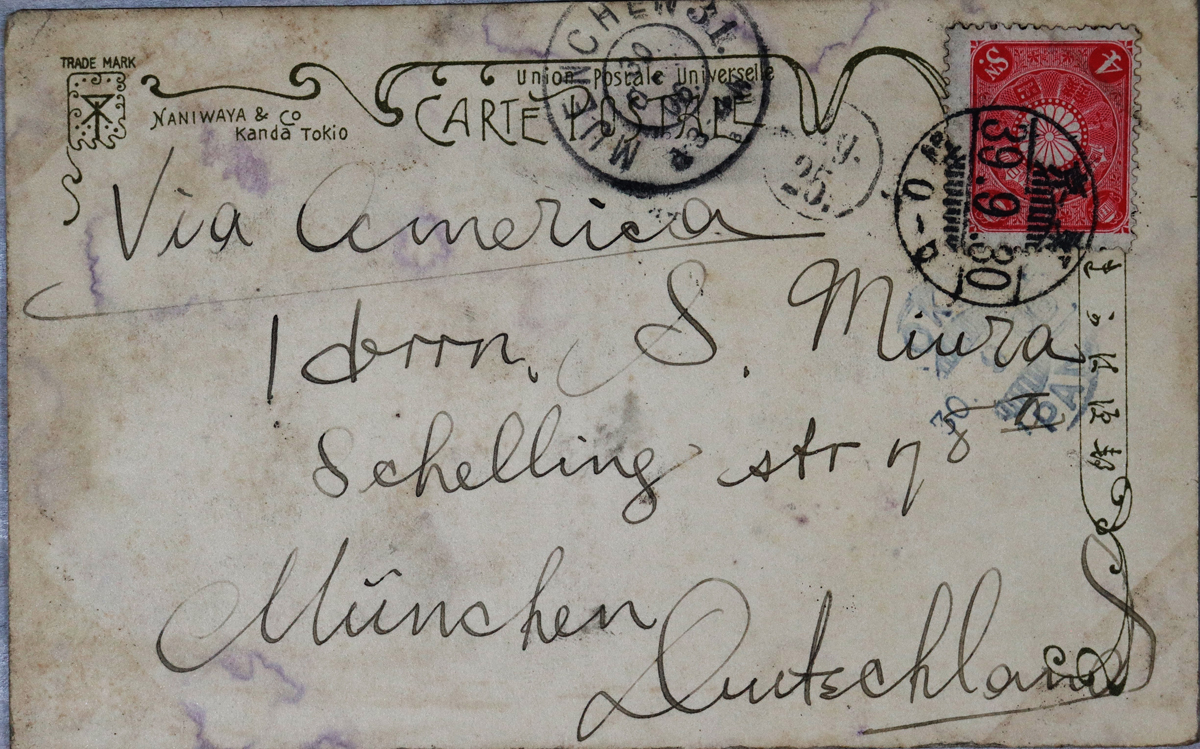 TRADE MARK
NANIWAYA & Co
Kanda Tokio
Union Postale Universelle
CARTE POSTALE
MUENCHEN 31.
25.
4
SN.
39.9.30
Via America
Herrn. S. Miura
Schelling str 78 II
München
Deutschland